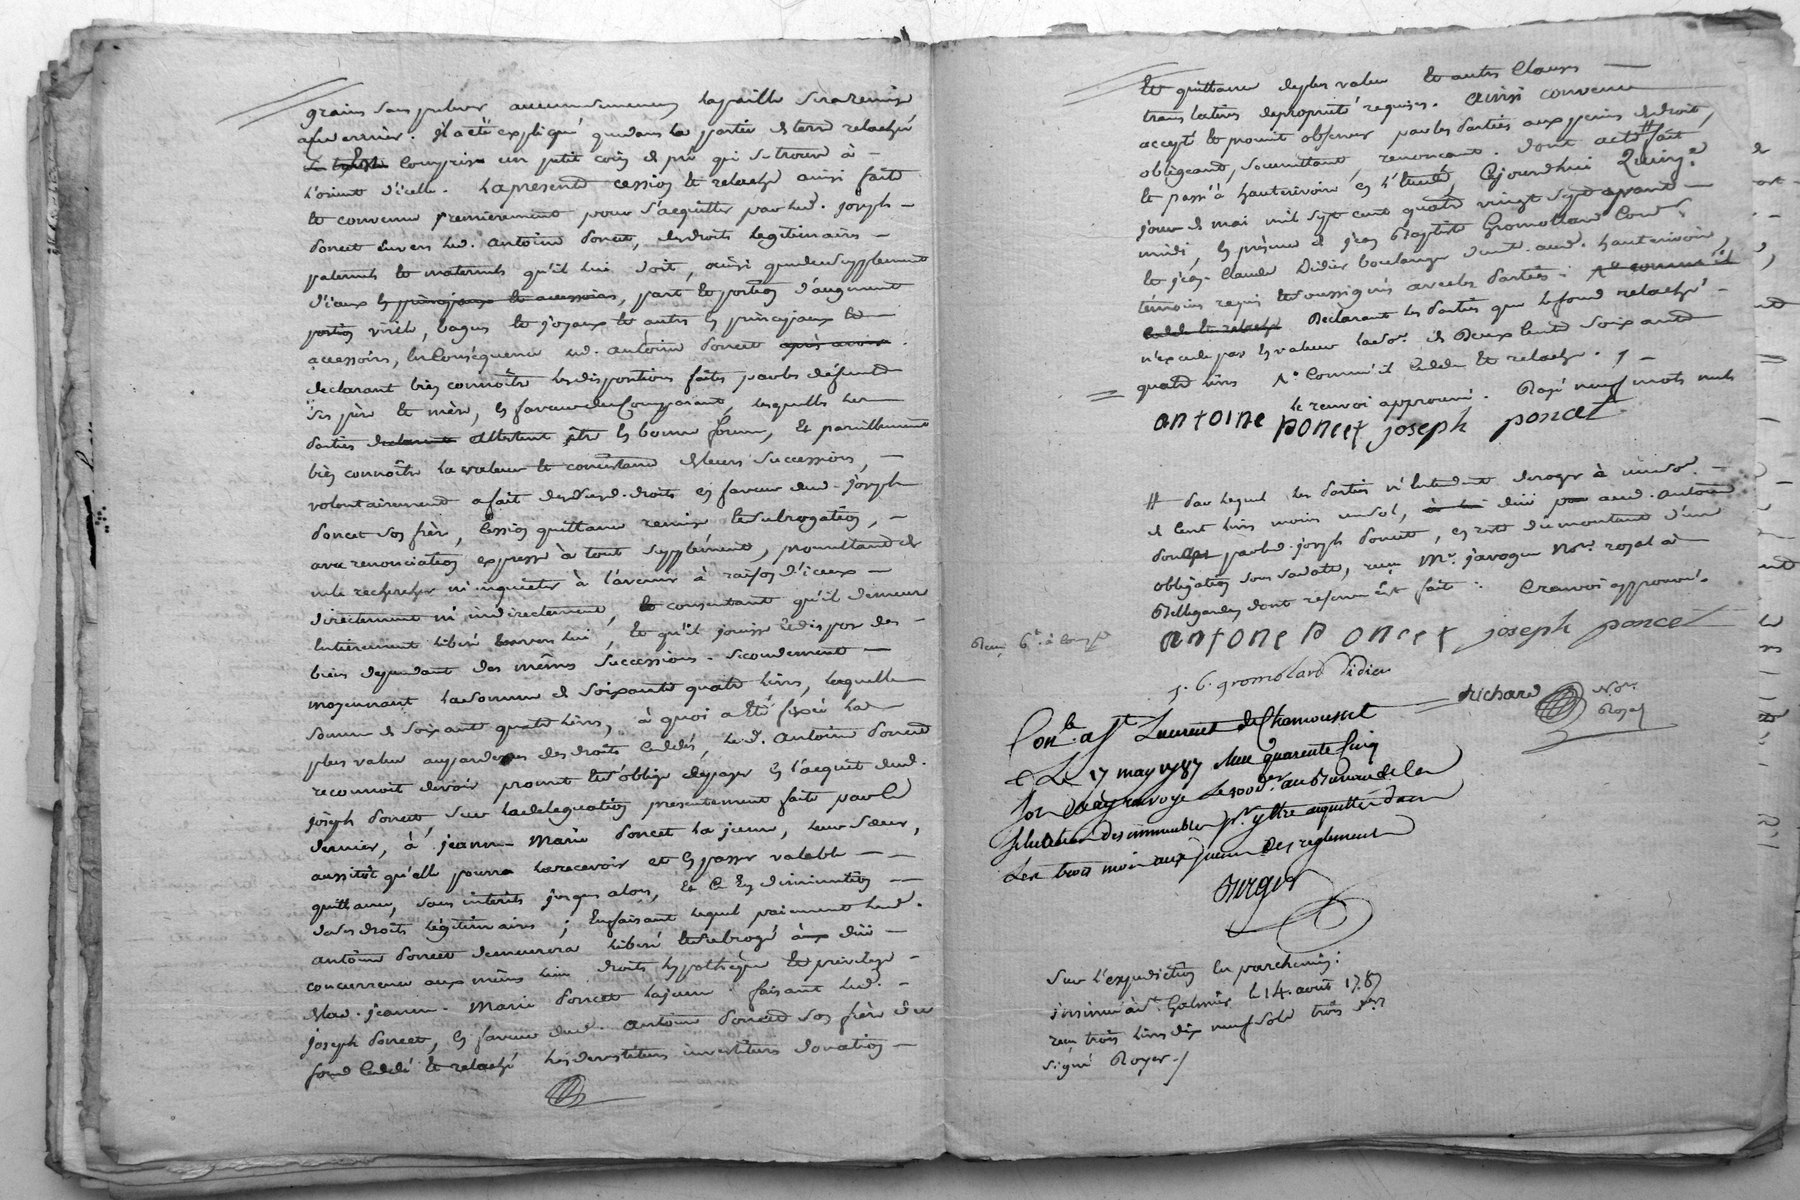 grains sans pulver aucunsemement, la paille sera remise
au dernier. Il a été expliqué que dans la partie de terre relachée
compris un petit coin de pré qui se trouve à
l'orient d'icelle. La presente cession et relache ainsi faite
et convenue premierement pour s'acquitter par led. joseph
Poncet envers led. Antoine Poncet, des droits legitimaires
paternels et maternels qu'il lui doit, ainsi que du supplement
d'iceux en principaux et accessoires, part et portion d'augment
portion virile, bagues et joyaux et autres en principaux et
accessoires, en consequence led. Antoine Poncet après avoir
declarant bien connoître les dispositions faites par les défunts
ses père et mère, en faveur du Comparant, lesquelles les
Parties attestent être en bonne forme, et pareillement
bien connoître la valeur et consistance de leurs successions,
volontairement a fait desd. droits en faveur dud. joseph
Poncet son frère, cession quittance remise et subrogation,
avec renonciation expresse à tout supplément, promettant de
ne le rechercher ni inquiéter à l'avenir à raison d'iceux
directement ni indirectement, et consentant qu'il demeure
entierement liberé envers lui, et qu'il jouisse et dispose des
biens dependant des mêmes successions. Secondement
moyennant la somme de soixante quatre livres, laquelle
somme de soixante quatre livres, à quoi a été fixée la
plus value au pardessus des droits cedés, led. Antoine Poncet
reconnoit devoir promet et s'oblige de payer en l'acquit dud.
joseph Poncet sur la delegation presentement faite par ce
dernier, à jeanne Marie Poncet la jeune, leur sœur,
aussitôt qu'elle pourra la recevoir et en passer valable
quittance, sans interets jusques alors, et ce en diminution
de ses droits légitimaires; En faisant lequel paiement led.
antoine Poncet demeurera liberé et subrogé à due
concurrence aux mêmes lieu droits hypothèque et privilege
de lad. jeanne Marie Poncet la jeune faisant led.
joseph Poncet, en faveur dud. Antoine Poncet son frère du
fond cedé et relaché les devestiture investiture donation
et quittance de plus value et autres clauses
translatives de proprieté requises. Ainsi convenu
accepté et promit observer par les Parties aux peines de droit,
obligeant, soumettant, renonçant. Dont acte # fait
et passé à hauterivoire en l'Etude, cejourdhui Quinze
jour de mai mil sept cent quatre vingt sept avant
midi, en presence de jean Baptiste Gromollard
et jean Claude Didier boulanger dud. hauterivoire,
témoins requis et soussignés avec les Parties:
Declarant les Parties que le fond relaché
n'excede pas en valeur la so. de Deux cent soixante
quatre livres Comm'il cedde et relache.
le renvoi approuvé. Rayé neuf mots nuls
antoine poncet joseph poncet
# Par lequel les Parties n'entendent deroger à une so.
de cent livres moins un sol, due aud. antoine
Poncet par led. joseph Poncet, en reste du montant d'une
obligation sous sa date, reçue Mr. javogue Nore. royal à
Bellegarde, dont reserve est faite: Ce renvoi approuvé.
antone Poncet joseph poncet
J. B. gromolard Didier
Richard Nore. Royal
Conlé. a St. Laurent de Chamousset
Le 17 may 1787 Reçu quarante cinq
sols renvoyé Le 100e. der. au Bureau de la
situation des immeubles pr. y être acquitté dans
Les trois mois aux peines des reglement
Sur l'expedition en parchemin:
insinué à St. Galmier le 14. août 1787
reçu trois livres dix neuf sols trois ders.
signé Royer./